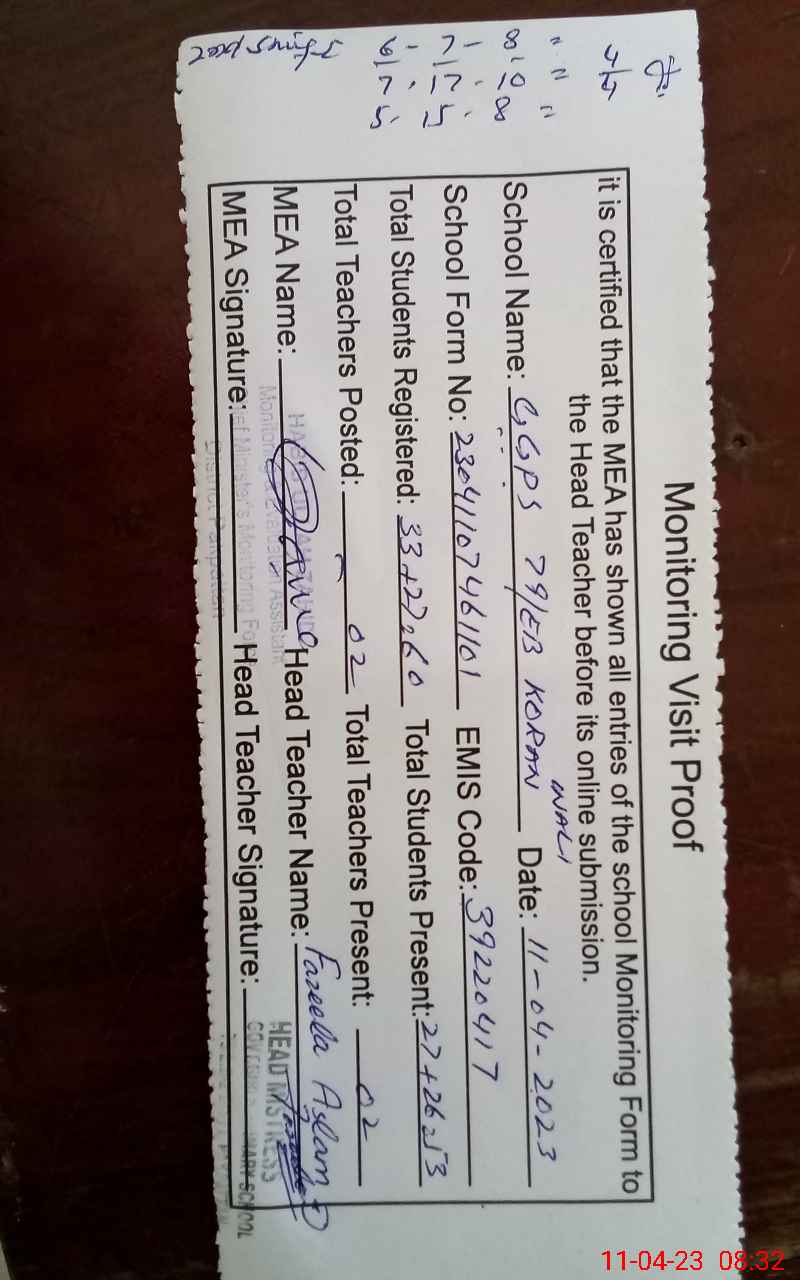 Monitoring Visit Proof
it is certified that the MEA has shown all entries of the school Monitoring Form to
the Head Teacher before its online submission.
School Name: GGPS 79/EB KORAN WALI Date: 11-04-2023
School Form No: 23041107461101 EMIS Code: 39220417
Total Students Registered: 33+27=60 Total Students Present: 27+26=53
Total Teachers Posted: 02 Total Teachers Present: 02
MEA Name: Head Teacher Name: Fazeela Aslam
MEA Signature: Head Teacher Signature:
Monitoring & Evaluation Assistant
Chief Minister's Monitoring Force
District Pakpattan
HEAD MISTRESS
11-04-23 08:32